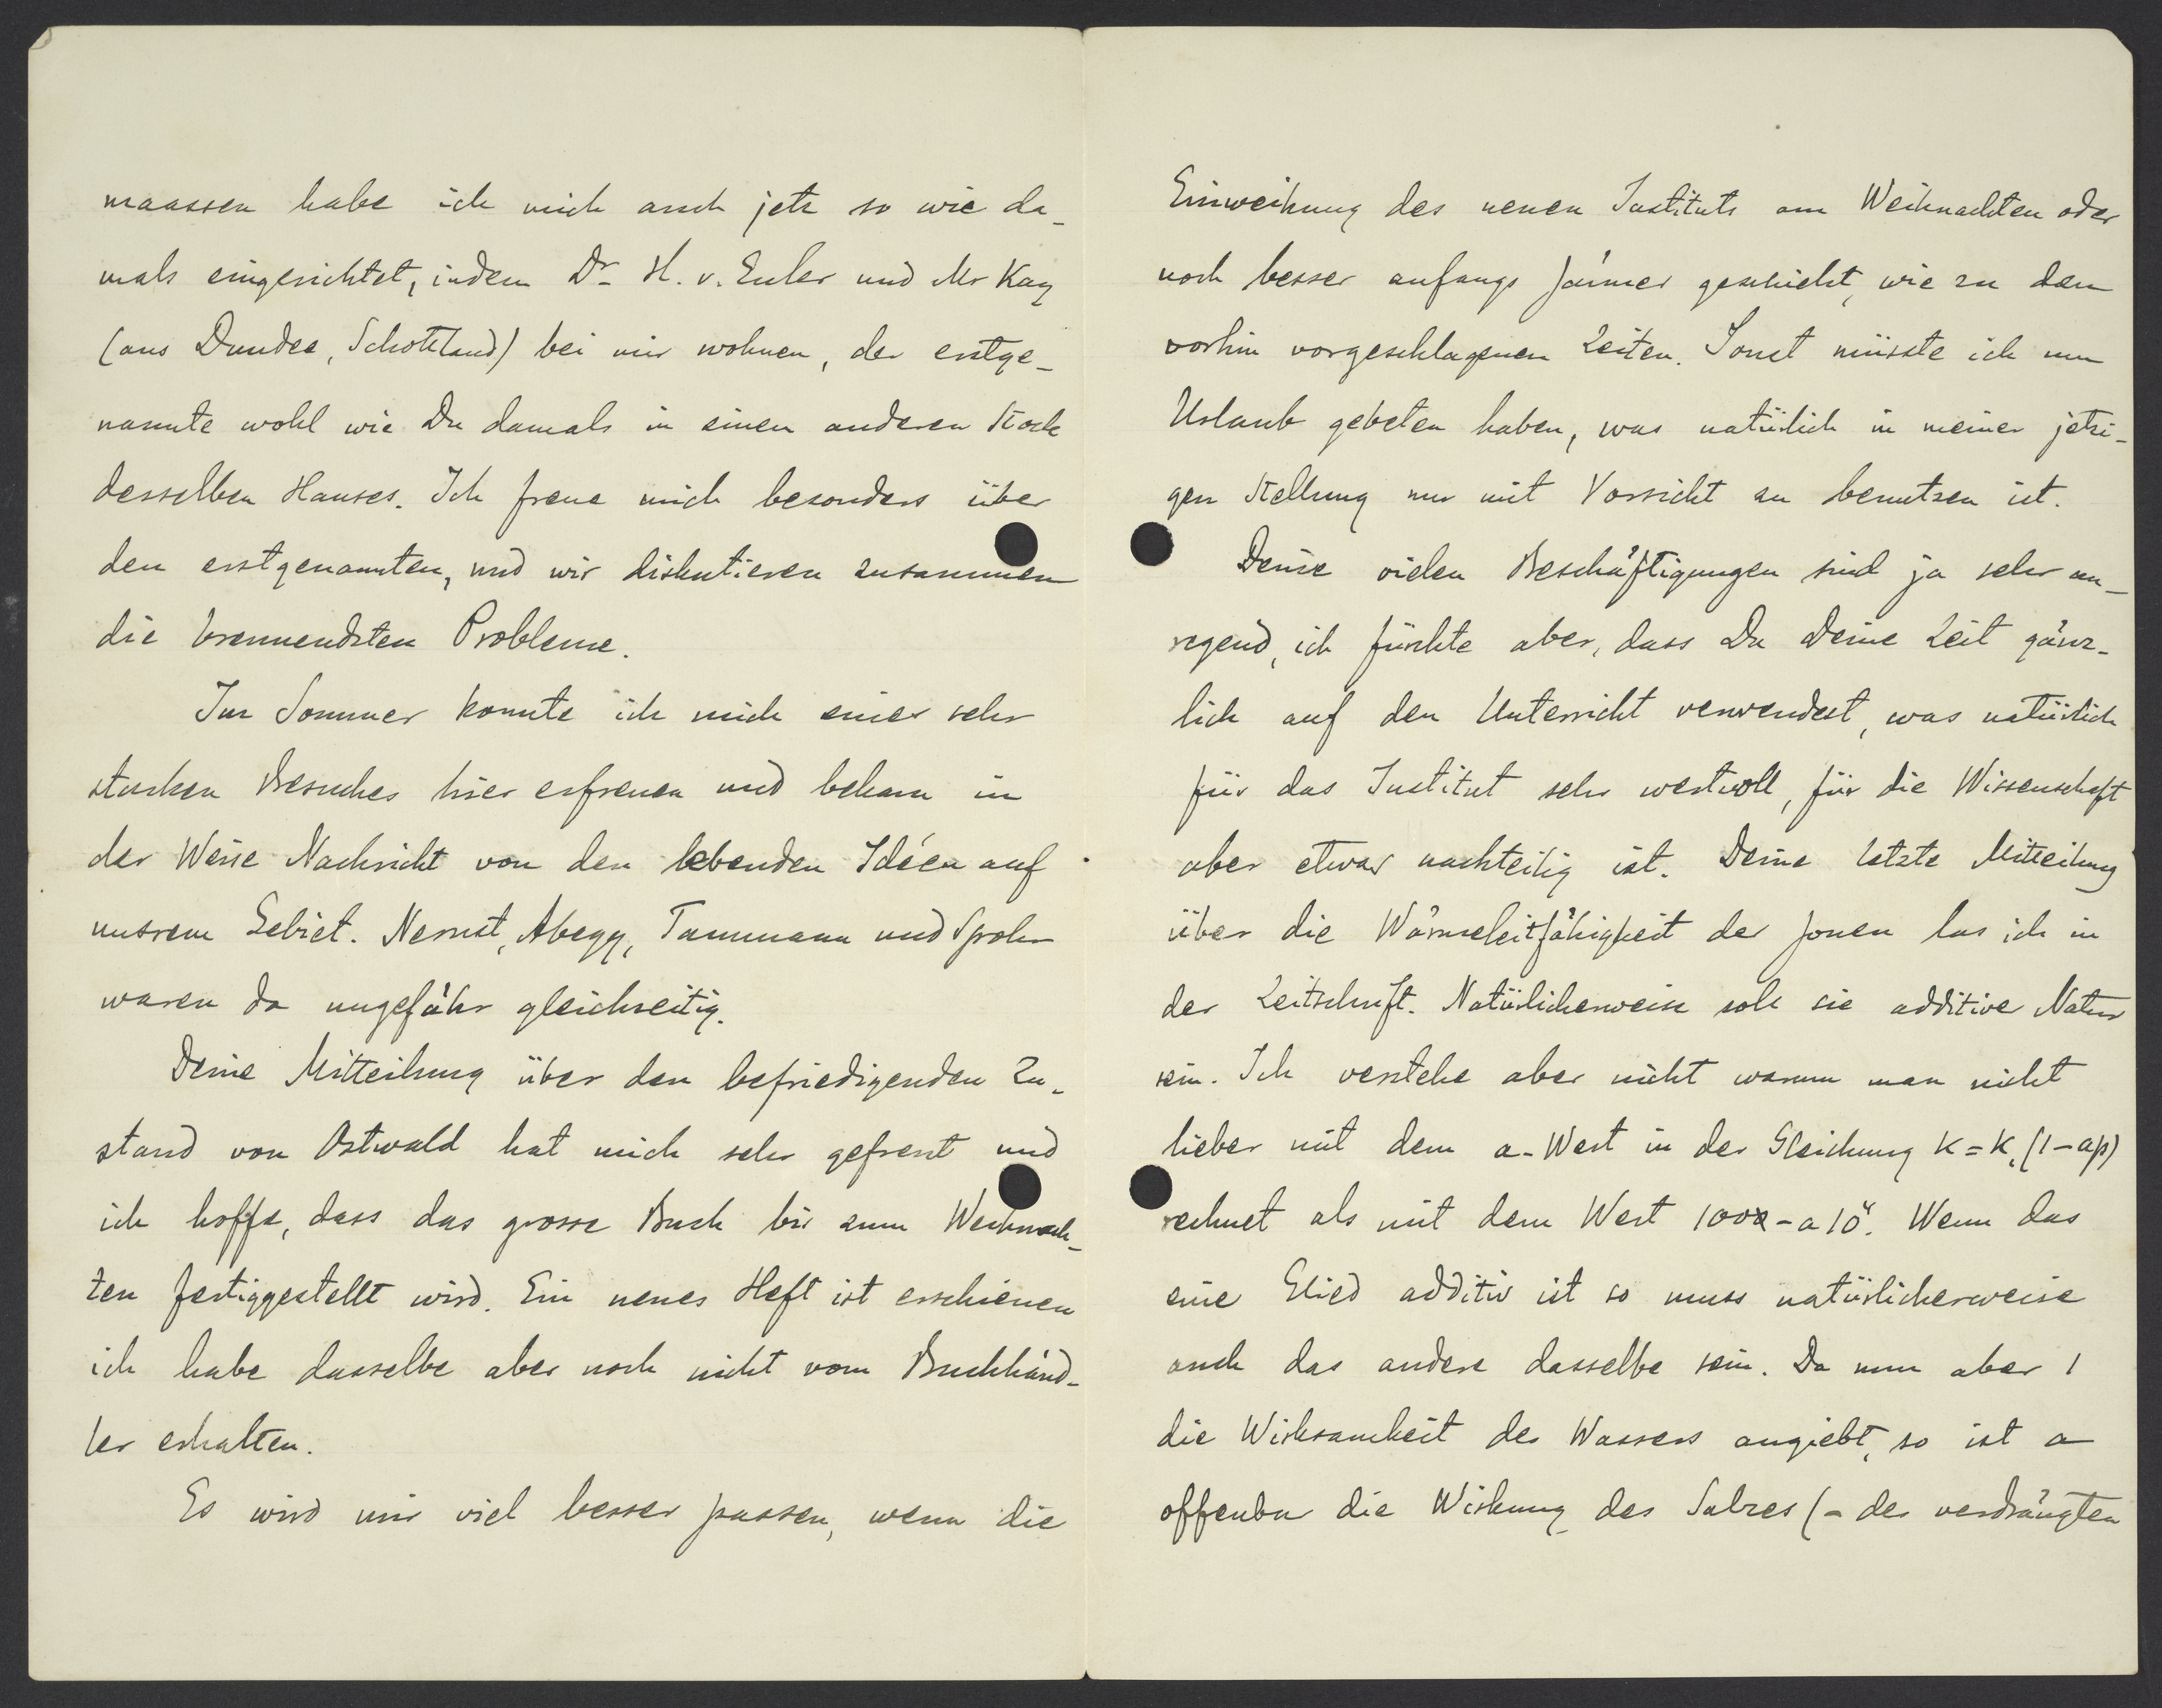 maassen habe ich mich auch jetz so wie da-
mals eingerichtet, indem Dr. H. v. Euler und Mr Kay
(aus Dundee, Schottland) bei mir wohnen, der erstge-
nannte wohl wie Du damals in einen anderen Stock
desselben Hauses. Ich freue mich besonders über
den erstgenannten, und wir diskutieren zusammen
die brennendsten Probleme.
Im Sommer konnte ich mich einer sehr
starken Besuches hier erfreuen und bekam in
der Weise Nachricht von den lebenden Idéen auf
unsrem Gebiet. Nernst, Abegg, Tammann und Spohr
waren da ungefähr gleichzeitig.
Deine Mitteilung über den befriedigenden Zu-
stand von Ostwald hat mich sehr gefreut und
ich hoffe, dass das grosse Buch bis zum Weihnach-
ten fertiggestellt wird. Ein neues Heft ist erschienen
ich habe dasselbe aber noch nicht vom Buchhänd-
ler erhalten.
Es wird mir viel besser passen, wenn die
Einweihung des neuen Instituts am Weihnachten oder
noch besser anfangs Jänner geschieht, wie zu den
vorhin vorgeschlagenen Zeiten. Sonst müsste ich um
Urlaub gebeten haben, was natürlich in meiner jetzi-
gen Stellung nur mit Vorsicht zu benutzen ist.
Deine vielen Beschäftigungen sind ja sehr an-
regend, ich fürchte aber, dass Du Deine Zeit gänz-
lich auf den Unterricht verwendest, was natürlich
für das Institut sehr wertvoll, für die Wissenschaft
aber etwas nachteilig ist. Deine letzte Mitteilung
über die Wärmeleitfähigkeit der Jonen las ich in
der Zeitschrift. Natürlicherweise soll sie additive Natur
sein. Ich verstehe aber nicht warum man nicht
lieber mit dem a-Wert in der Gleichung K = K, (1-ap)
rechnet als mit dem Wert 100 - a 10⁴. Wenn das
eine Glied additiv ist so muss natürlicherweise
auch das andere dasselbe sein. Da nun aber 1
die Wirksamkeit des Wassers angiebt, so ist a
offenbar die Wirkung des Salzes (- des verdrängten